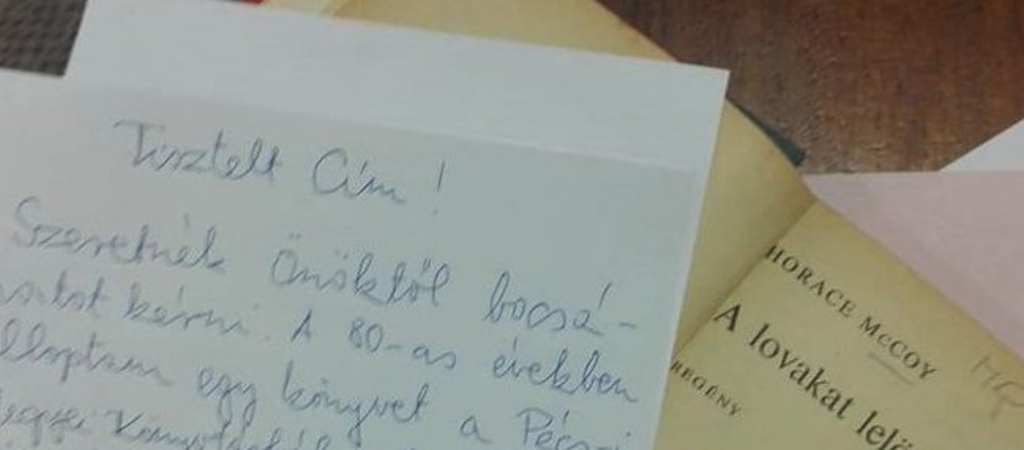 Tisztelt Cím!
Szeretnék Önöktől bocsá-
natot kérni. A 80-as években
elloptam egy könyvet a Pécsi
Megyei Könyvtárból
HORACE McCOY
A lovakat lelö
REGÉNY